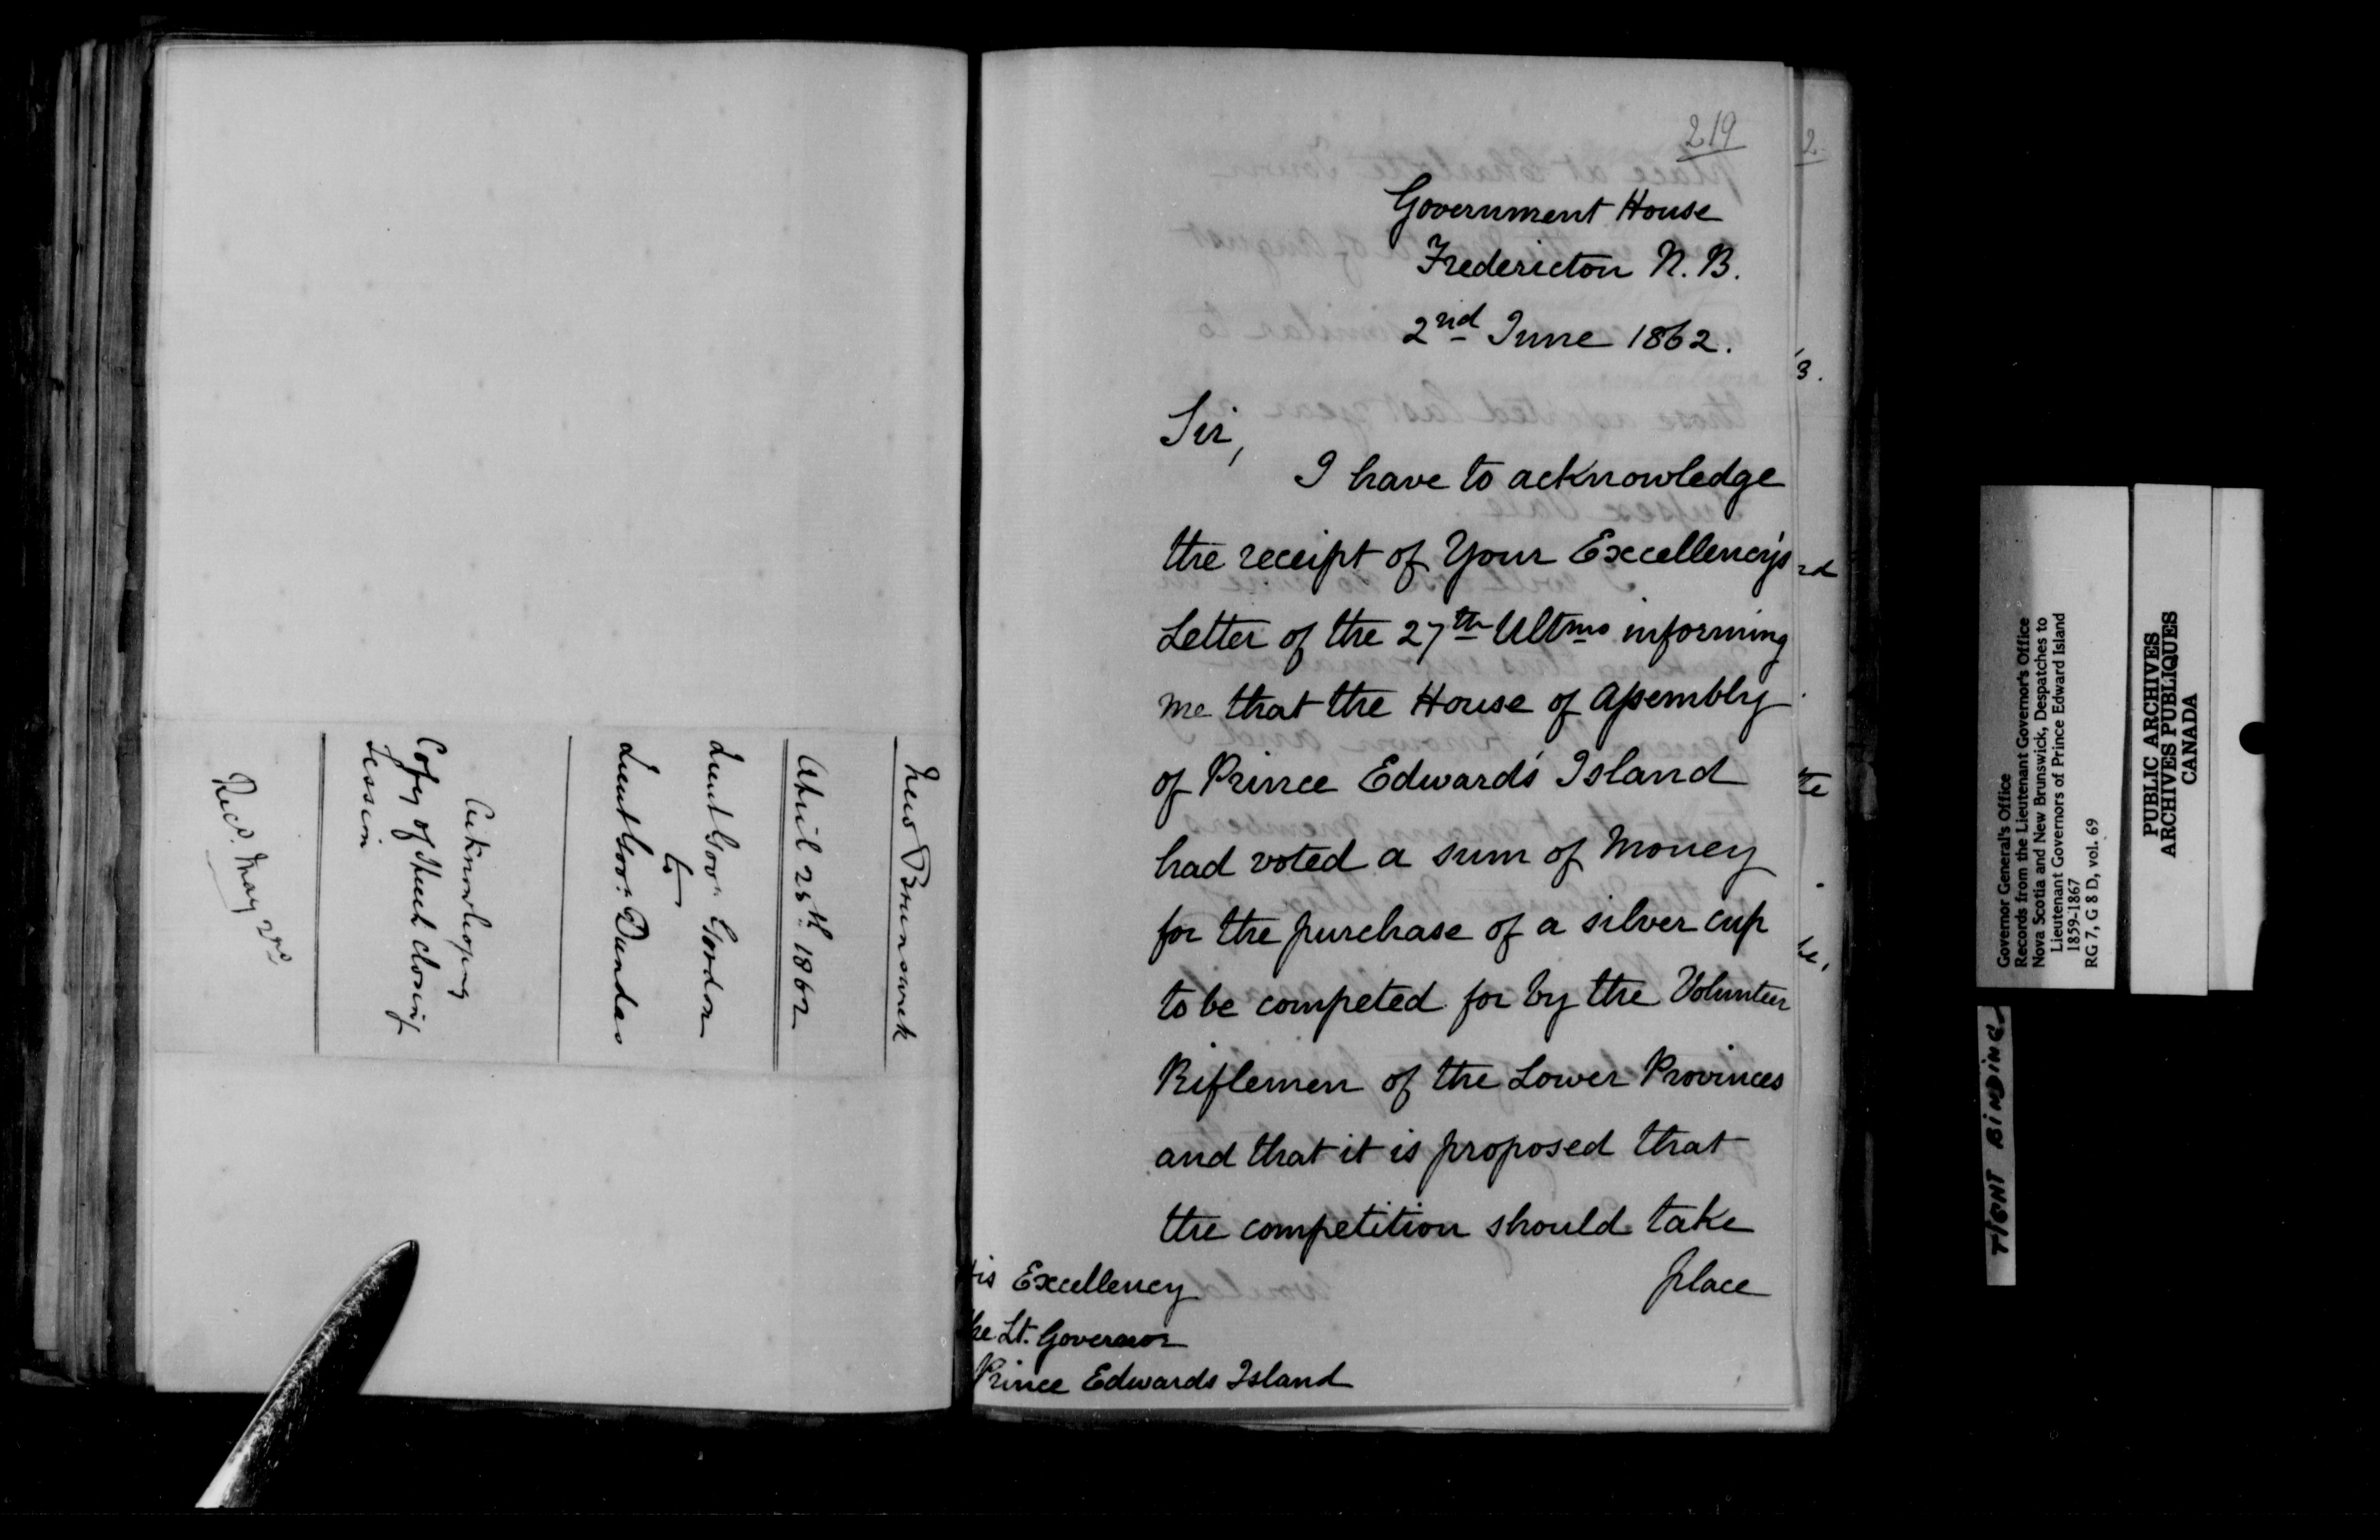 New Brunswick
April 28th 1862
Lieut Govr. Gordon
to
Lieut Govr. Dundas
Acknowledging
Copy of Speech closing
Session
Recd. May 2nd
219
Government House
Fredericton N. B.
2nd June 1862.
Sir,
I have to acknowledge
the receipt of Your Excellency's
Letter of the 27th Ultmo informing
me that the House of Assembly
of Prince Edward's Island
had voted a sum of Money
for the purchase of a silver cup
to be competed for by the Volunteer
Riflemen of the Lower Provinces
and that it is proposed that
the competition should take
place
His Excellency
the Lt. Governor
Prince Edwards Island
Governor General's Office
Records from the Lieutenant Governor's Office
Nova Scotia and New Brunswick, Despatches to
Lieutenant Governors of Prince Edward Island
1859-1867
RG 7, G 8 D, vol. 69
PUBLIC ARCHIVES
ARCHIVES PUBLIQUES
CANADA
TIGHT BINDING